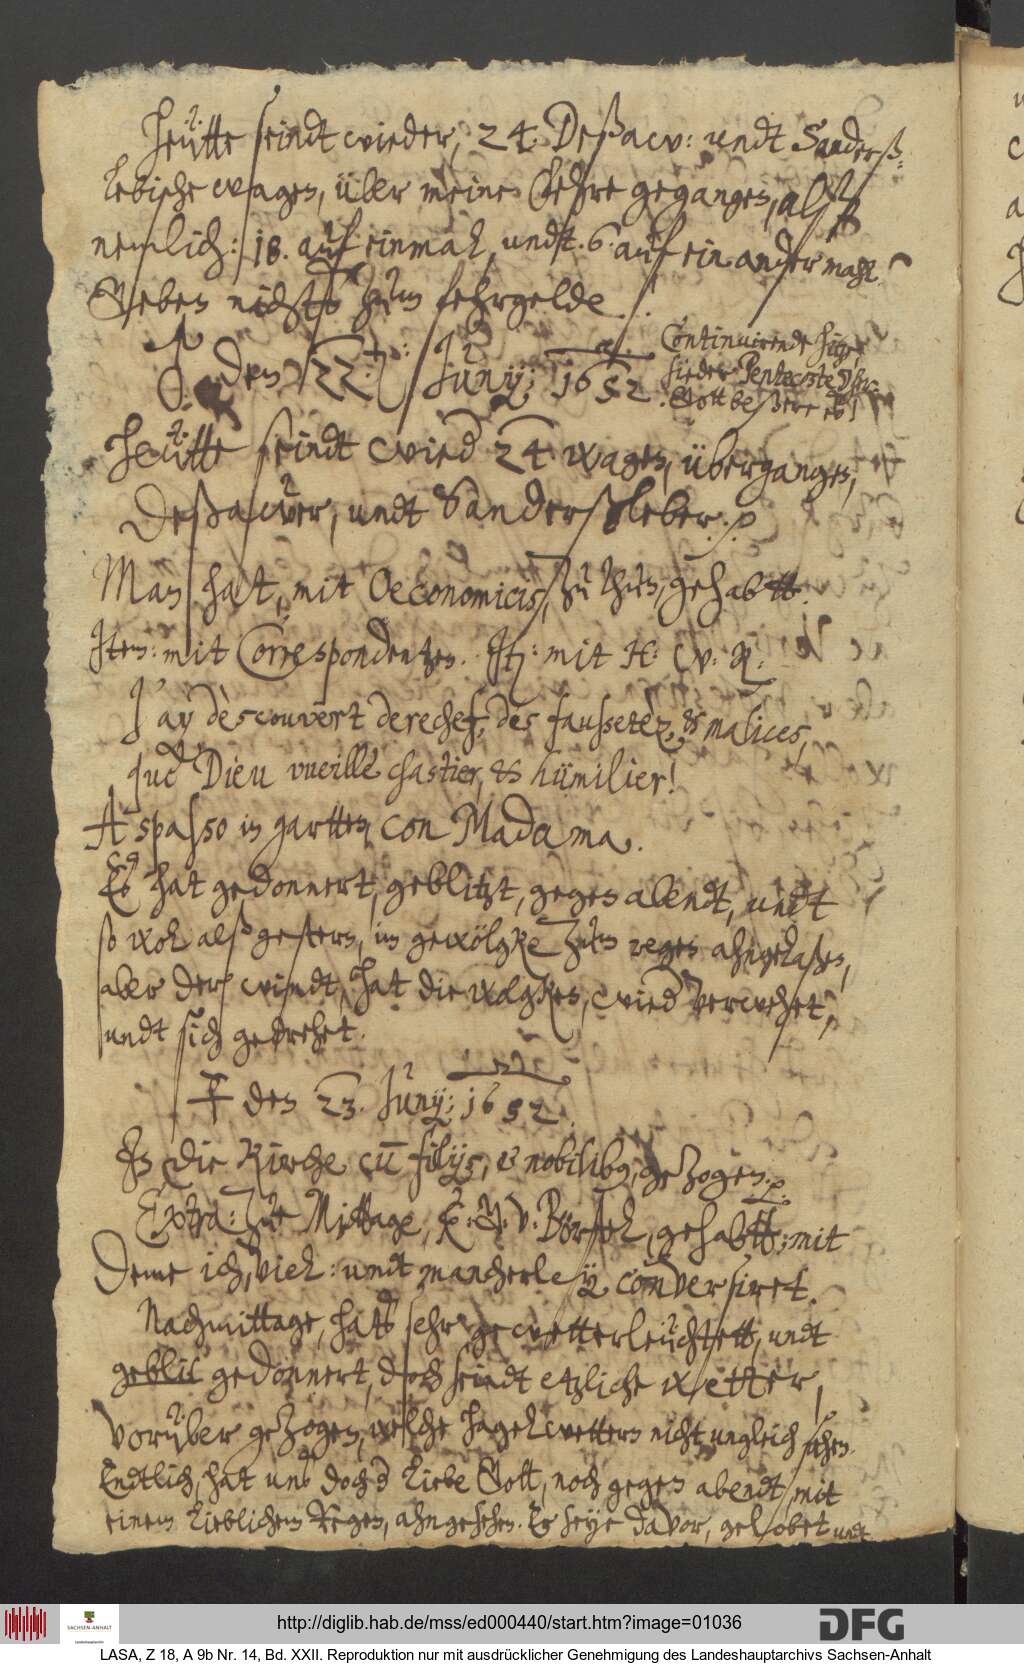 Heütte seindt wieder, 24. Deßaw: undt Sanderß=
lebische wagen, über meine Fehre gegangen, alß
nemlich: 18. auf einmahl, undt .6. auf ein ander mahl.
Geben nichts zum fehrgelde.
den 22. Juny; 1652.
Continuirende hitze
sieder Pentecoste her.
Gott beßere es!
Heütte seindt wied 24 wagen, überganges,
Deßawer, undt Sanderßleber. p
Man hat, mit Oeconomicis, zu thun, gehabtt.
Item: mit Correspondentzen. It: mit H: W. R:
J'ay dèscouvert derechef, des faussetèz, & malices,
que Dieu vueille chastier, & hümilier!
A spasso in gartten con Madama.
Es hat gedonnert, geblitzt, gegen abendt, undt
so wol alß gestern, in gewölgke zum regen ahngelaßen,
aber der windt, hat die wolgken, wied verwehet,
undt sich gedrehet.
den 23. Juny; 1652.
In die Kirche cu filijs, & nobilibus, gezogen. p
Extra: Zur Mittage, v. Börstel, gehabtt; mit
Deme ich, viel: undt mancherley conversiret.
Nachmittage, hats sehr gewetterleüchtett, undt
geblit gedonnert, doch seindt etzliche wetter,
vorüber gezogen, welche hagelwettern nicht ungleich sahen.
Endtlich, hat uns doch d liebe Gott, noch gegen abendt, mit
einem lieblichem Regen, ahngesehen. Er seye davor, gelobet undt
http://diglib.hab.de/mss/ed000440/start.htm?image=01036
SACHSEN-ANHALT
DFG
LASA, Z 18, A 9b Nr. 14, Bd. XXII. Reproduktion nur mit ausdrücklicher Genehmigung des Landeshauptarchivs Sachsen-Anhalt